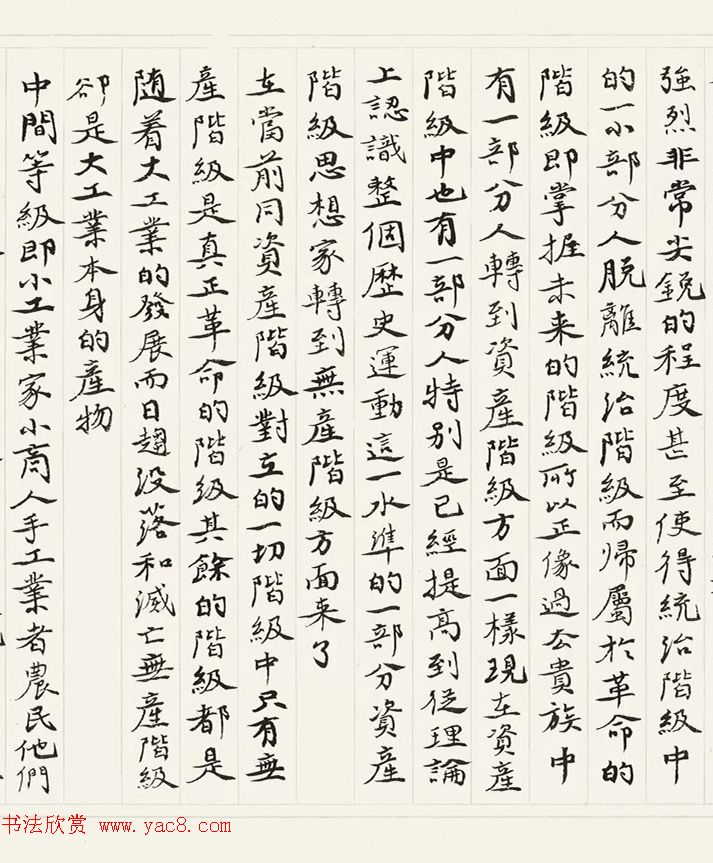 強烈非常尖銳的程度甚至使得統治階級中
的一小部分人脫離統治階級而歸屬於革命的
階級即掌握未来的階級所以正像過去貴族中
有一部分人轉到資產階級方面一樣現在資產
階級中也有一部分人特別是已經提高到從理論
上認識整個歷史運動這一水準的一部分資產
階級思想家轉到無產階級方面来了
在當前同資產階級對立的一切階級中只有無
產階級是真正革命的階級其餘的階級都是
隨着大工業的發展而日趨没落和滅亡無產階級
卻是大工業本身的產物
中間等級即小工業家小商人手工業者農民他們
书法欣赏 www.yac8.com